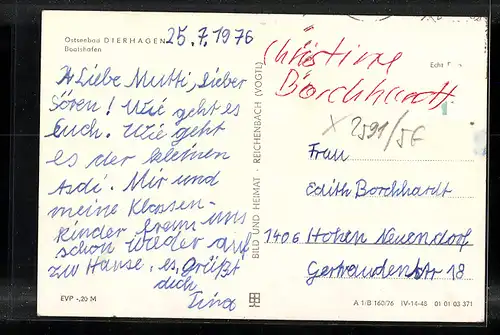 Ostseebad DIERHAGEN
Bootshafen
25.7.1976
Liebe Mutti, Lieber
Sören! Wie geht es
Euch. Wie geht
es der kleinen
Asdi. Mir und
meine Klassen-
kinder freun uns
schon wieder auf
zu Hause. es grüßt
dich
Tina
EVP -,20 M
BILD UND HEIMAT · REICHENBACH (VOGTL)
Christine
Borchhardt
Echt Foto
X 2591/56
Frau
Edith Borchhardt
1406 Hohen Neuendorf
Gertraudenstr 18
A 1/B 160/76 IV-14-48 01 01 03 371